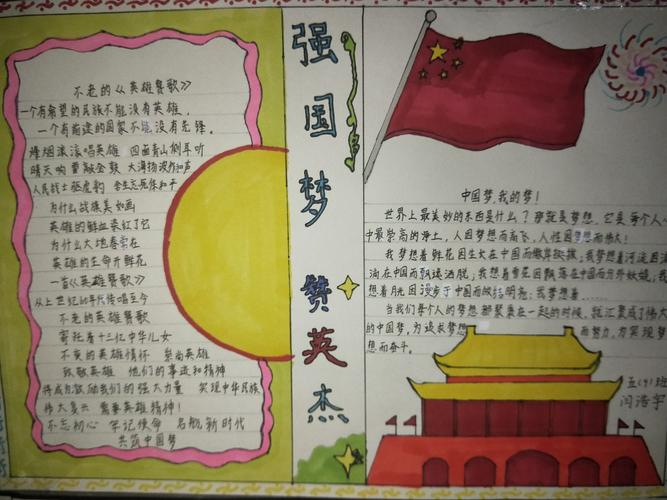 不老的《英雄赞歌》
一个有希望的民族不能没有英雄,
一个有前途的国家不能没有先锋。
烽烟滚滚唱英雄 四面青山侧耳听
晴天响雷敲金鼓 大海扬波作和声
人民战士驱虎豹 舍生忘死保和平
为什么战旗美如画
英雄的鲜血染红了它
为什么大地春常在
英雄的生命开鲜花
一首《英雄赞歌》
从上世纪 年代传唱至今
不老的英雄赞歌
寄托着十三亿中华儿女
不变的英雄情怀 崇尚英雄
致敬英雄 他们的事迹和精神
将成为激励我们的强大力量 实现中华民族
伟大复兴 需要英雄精神!
不忘初心 牢记使命 名舰新时代
共筑中国梦
强国梦 赞英杰
中国梦,我的梦!
世界上最美妙的东西是什么?那就是梦想。它是每个人心
中最崇高的净土,人因梦想而高飞,人性因梦想而伟大!
我梦想着鲜花因生在中国而 ,我梦想着河流因流
淌在中国而飘逸洒脱;我想着雪花因飘落在中国而分外妖娆;我
想着月光因 于中国而皎洁明亮;我梦想着......
当我们每个人的梦想都聚集在一起的时候,就汇聚成了伟大
的中国梦,为追求梦想 而努力,为实现梦
想而奋斗。
五(9)班
闫浩宇